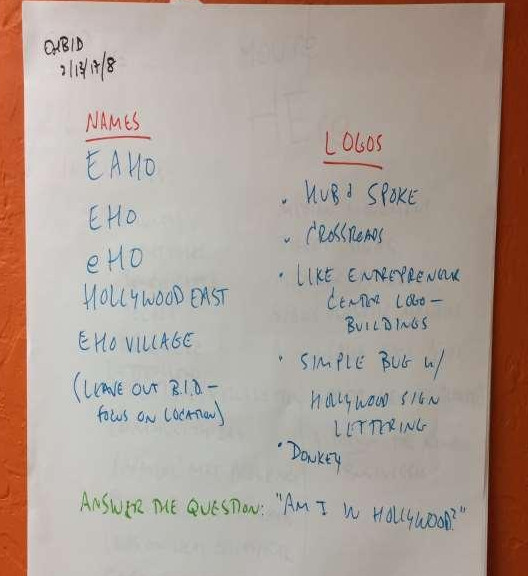 EHBID
2/13/17/8
NAMES
EAHO
EHO
eHO
HOLLYWOOD EAST
EHO VILLAGE
(LEAVE OUT B.I.D. –
FOCUS ON LOCATION)
LOGOS
• HUB & SPOKE
• CROSSROADS
• LIKE ENTREPRENEUR
CENTER LOGO –
BUILDINGS
• SIMPLE BUG W/
HOLLYWOOD SIGN
LETTERING
• DONKEY
ANSWER THE QUESTION: "AM I IN HOLLYWOOD?"